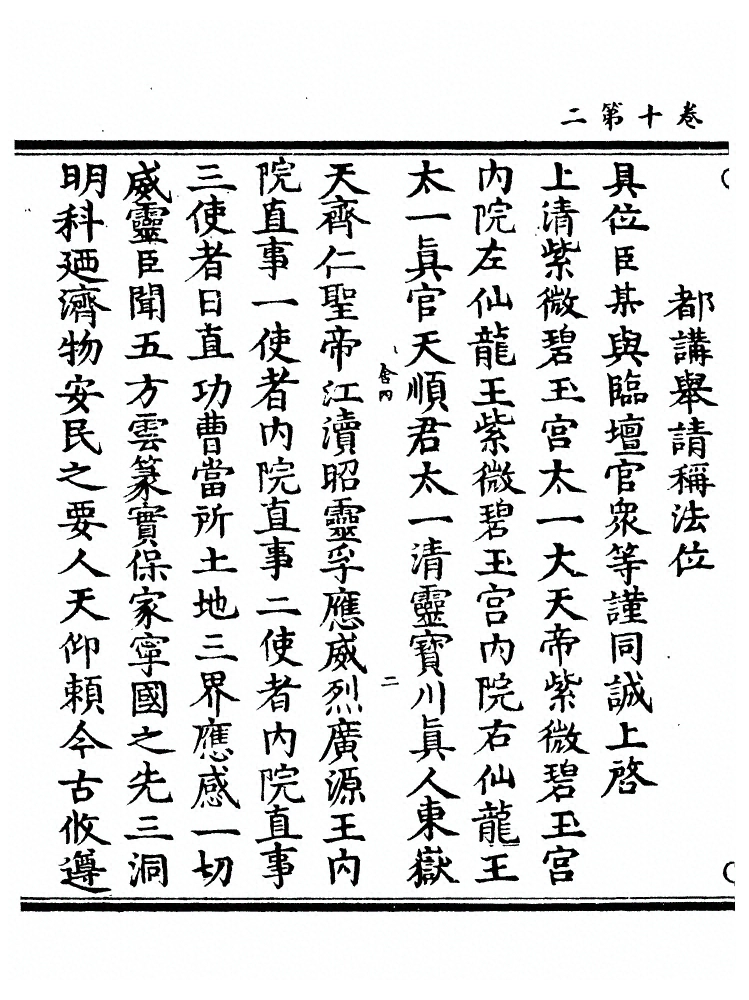 卷十第二
都講舉請稱法位
具位臣某與臨壇官衆等謹同誠上啓
上清紫微碧玉宮太一大天帝紫微碧玉宮
內院左仙龍王紫微碧玉宮內院右仙龍王
太一眞官天順君太一清靈寶川眞人東嶽
舍內
二
天齊仁聖帝江瀆昭靈孚應威烈廣源王內
院直事一使者內院直事二使者內院直事
三使者日直功曹當所土地三界應感一切
威靈臣聞五方雲篆實保家寜國之先三洞
明科廼濟物安民之要人天仰賴今古攸遵